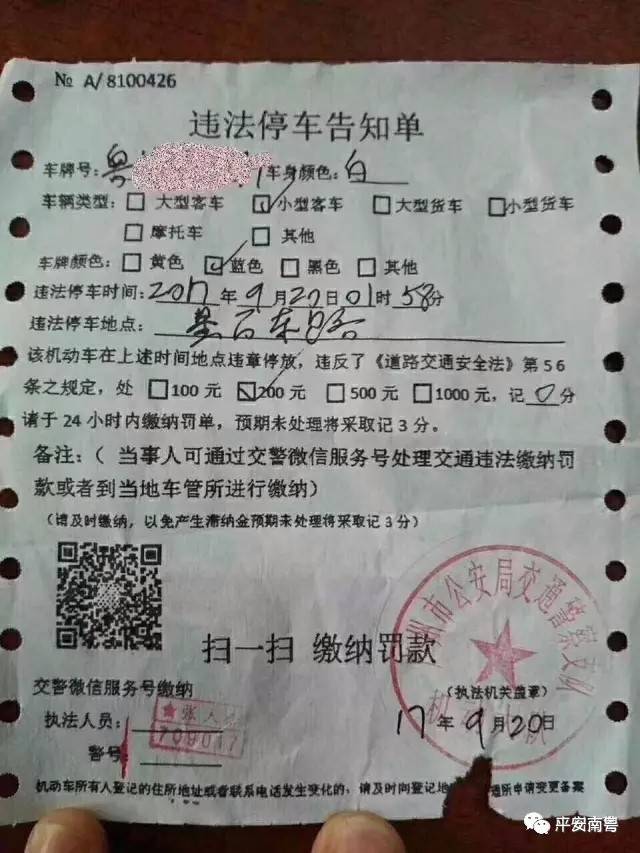 № A/8100426
违法停车告知单
车牌号:粤 车身颜色:白
车辆类型:□ 大型客车 ☑小型客车 □大型货车 □小型货车
□ 摩托车 □ 其他
车牌颜色:□ 黄色 ☑蓝色 □黑色 □其他
违法停车时间:2017年9月20日01时58分
违法停车地点:
该机动车在上述时间地点违章停放,违反了《道路交通安全法》第56
条之规定,处 □100元 ☑200元 □500元 □1000元,记0分
请于24小时内缴纳罚单,预期未处理将采取记3分。
备注:( 当事人可通过交警微信服务号处理交通违法缴纳罚
款或者到当地车管所进行缴纳)
(请及时缴纳,以免产生滞纳金预期未处理将采取记3分)
州市公安局交通警察支队
扫一扫 缴纳罚款
交警微信服务号缴纳
(执法机关盖章)
执法人员:
17年9月20日
警号:
709017
机动车所有人登记的住所地址或者联系电话发生变化的,请及时间登记地 通所申请变更备案
平安南粤